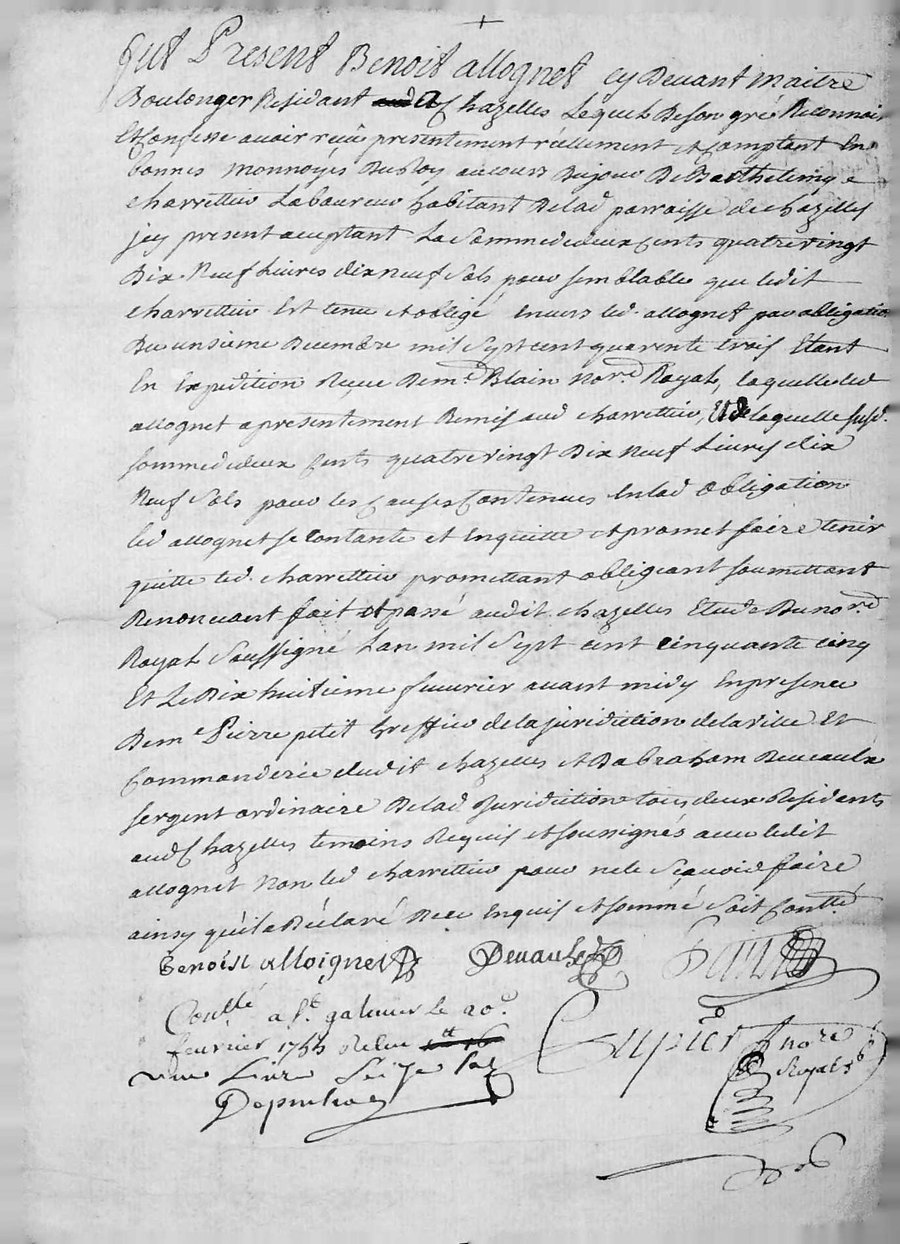 fut Present Benoit allognet cy Devant maitre
Boulonger Residant a Chazelles Lequel De son gré Reconnoit
Et Confesse avoir reçu presentement réellement et Comptant En
bonnes monnoyes Du Roy aucours Dujour De Barthelemy
charretier Laboureur habitant Delad parroisse de chazelles
jcy present aceptant La Somme de deux Cents quatrevingt
Dix-Neuf Livres dixneuf Sols pour semblable que ledit
charretier Est tenu et obligé Envers led. allognet par obligation
Du unsieme Decembre mil Sept cent quarente trois Etant
En Expedition Reçue De me Blain Nore Royal, laquelle led
allognet a presentement Remis aud charretier, Et de laquelle susd.
somme de deux Cents quatrevingt Dix Neuf Livres dix
Neuf Sols pour les Causes Contenues Enlad obligation
led allognet se Contante et Enquitte et promet faire tenir
quitte led. charretier promettant obligeant soumettant
Renoncant fait et passé audit chazelles Etude Du nore
Royal Soussigné Lan mil Sept cent cinquante cinq
Et Le Dix huitieme fevrier avant midy En presence
De me Pierre petit Greffier de la juridiction de la ville Et
Commanderie dudit chazelles et Dabraham Deveaulx
sergent ordinaire Delad Juridiction tous deux Residents
aud Chazelles temoins Requis et soussignés avec ledit
allognet Non led charretier pour ne le Sçavoir faire
ainsy qu'il a Déclaré De ce Enquis et sommé Soit Contllé
Benoist alloignet Devaulx Petit
Contllé a St galmier le 20e
fevrier 1755 Relue
une Livre Seize sols
Cupier nore
Royal